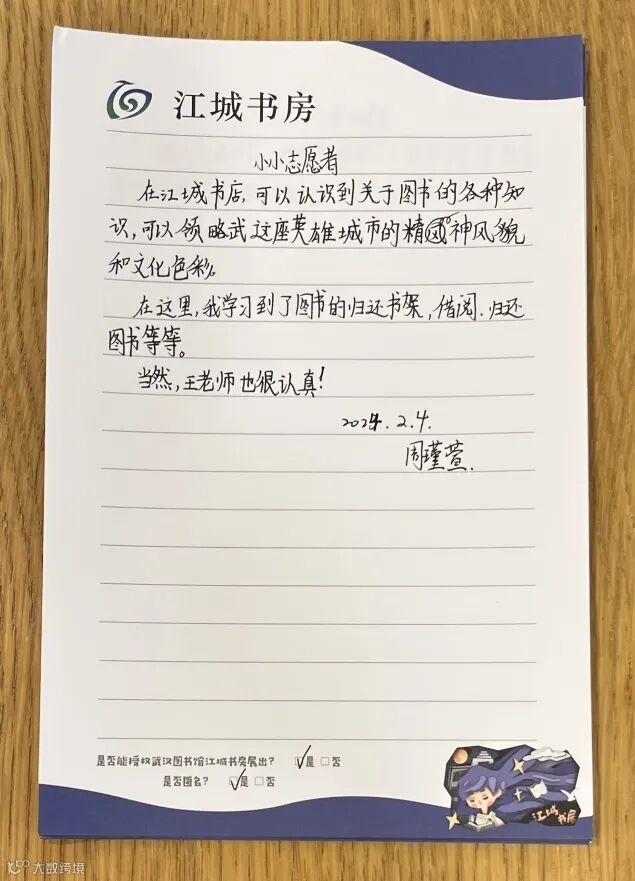 江城书房
小小志愿者
在江城书店,可以认识到关于图书的各种知
识,可以领略武这座英雄城市的精神风貌
和文化色彩。
在这里,我学习到了图书的归还书架,借阅、归还
图书等等。
当然,王老师也很认真!
2024.2.4.
周瑾萱.
是否能授权武汉图书馆江城书房展出? ☑是 □否
是否匿名? ☑是 □否
江城
书房
大数跨境